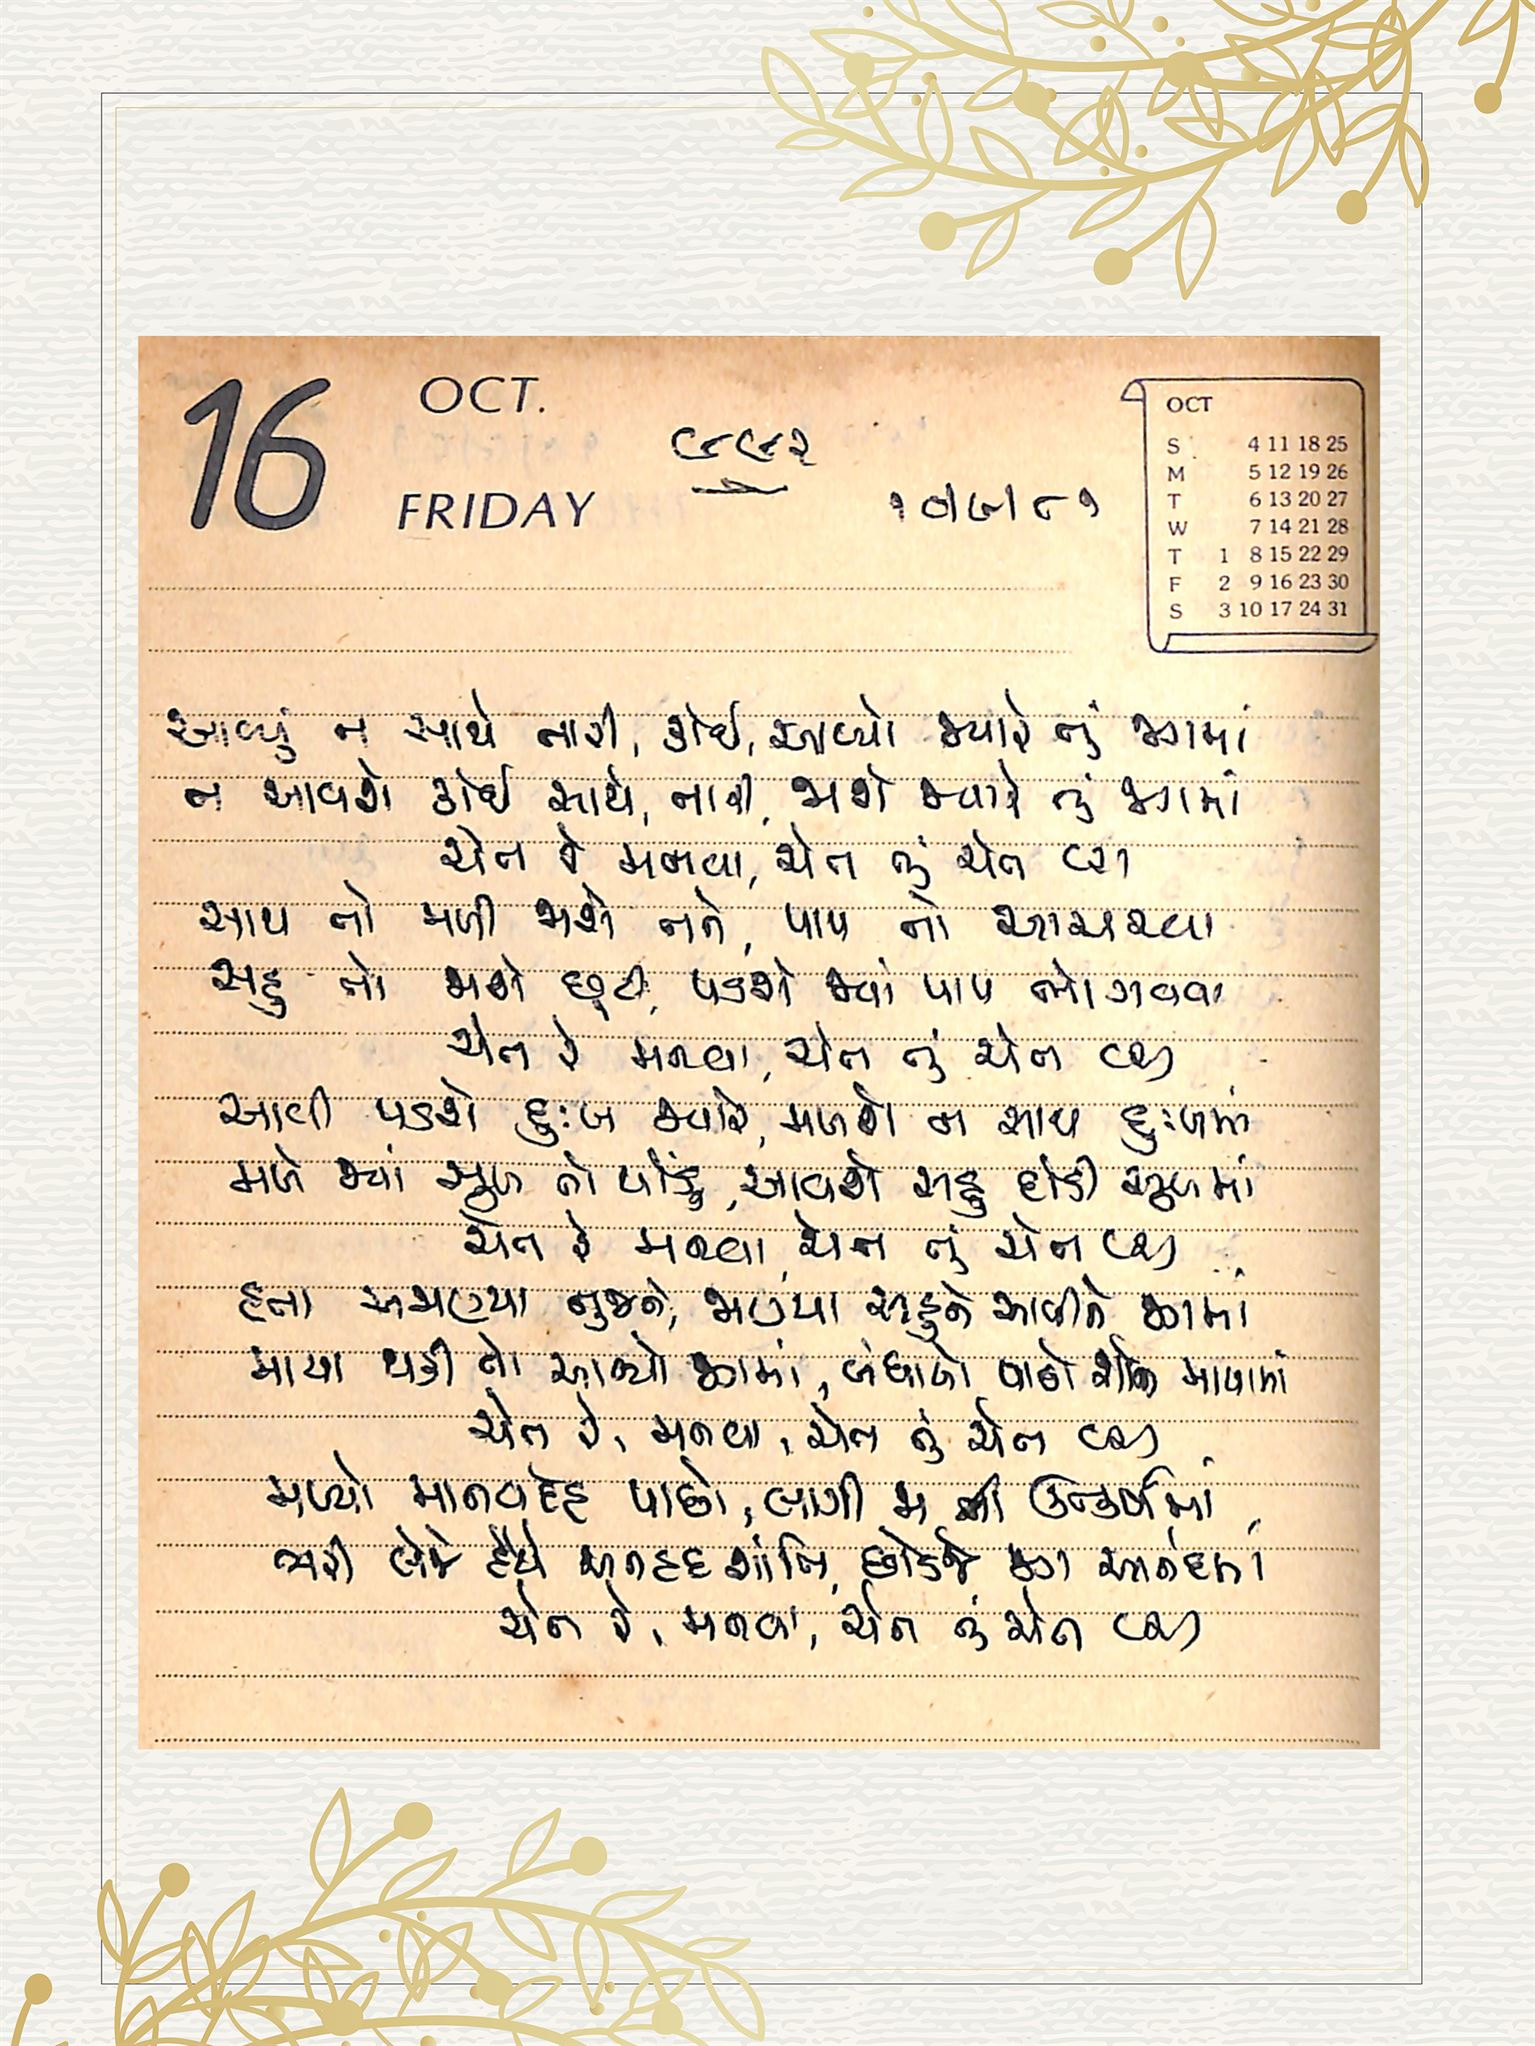 16
OCT.
FRIDAY
૧૦/૭/૮૧
OCT
S 4 11 18 25
M 5 12 19 26
T 6 13 20 27
W 7 14 21 28
T 1 8 15 22 29
F 2 9 16 23 30
S 3 10 17 24 31
આવ્યું ન સાથે તારી, કોઈ, આવ્યો જ્યારે તું જગમાં
ન આવશે કોઈ સાથે, તારી, જાશે જ્યારે તું જગમાં
ચેત રે મનવા, ચેત તું ચેત જરા
સાથ તો મળી જાશે તને, પાપ તો આચરવા
સહુ તો જાશે છૂટી, પડશે જ્યાં પાપ ભોગવવા
ચેત રે મનવા, ચેત તું ચેત જરા
આવી પડશે દુઃખ જ્યારે, મળશે ન સાથ દુઃખમાં
મળે જ્યાં સુખ તો થોડું, આવશે સહુ દોડી સુખમાં
ચેત રે મનવા, ચેત તું ચેત જરા
હતા અજાણ્યા તુજને, જાણ્યા સહુને આવીને જગમાં
માયા થકી તો આવ્યો જગમાં, બંધાયો પાછો માયામાં
ચેત રે, મનવા, ચેત તું ચેત જરા
મળ્યો માનવદેહ પાછો, લાગી જા ઉત્કર્ષમાં
ભરી લેજે હૈયે અનહદ શાંતિ, છોડજે જગ આનંદમાં
ચેત રે, મનવા, ચેત તું ચેત જરા